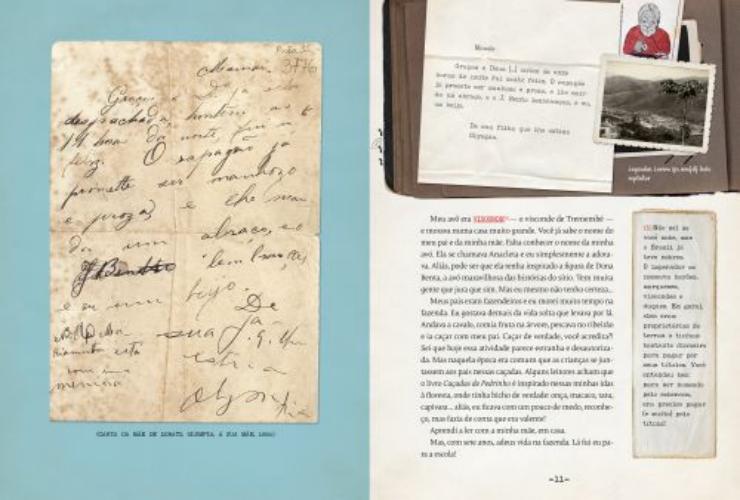 3776
Mamãe,
Graças a D. já es
despachada, hontem as
11 horas da noite, fui m to
feliz. O rapagão já
promette ser manhozo
e prozas e lhe man
da um abraço, e o
J. Bento lembranças,
e eu um beijo.
De
sua
Olympia
(CARTA DA MÃE DE LOBATO OLYMPIA, À SUA MÃE, 1882)
Mamãe
Graças a Deus [..] ontem às onze
horas da noite fui muito feliz. O rapagão
já promete ser manhoso e prosa, e lhe man-
da um abraço, e o J. Bento lembranças, e eu
um beijo.
De seu filho que lhe estima
Olympia.
Meu avô era VISCONDE — o visconde de Tremembé —
e morava numa casa muito grande. Você já sabe o nome do
meu pai e da minha mãe. Falta conhecer o nome da minha
avó. Ela se chamava Anacleta e eu simplesmente a adora-
va. Aliás, pode ser que ela tenha inspirado a figura de Dona
Benta, a avó maravilhosa das histórias do sítio. Tem muita
gente que jura que sim. Mas eu mesmo não tenho certeza...
Meus pais eram fazendeiros e eu morei muito tempo na
fazenda. Eu gostava demais da vida solta que levava por lá.
Andava a cavalo, comia fruta na árvore, pescava no ribeirão
e ia caçar com meu pai. Caçar de verdade, você acredita?!
Sei que hoje essa atividade parece estranha e desautoriza-
da. Mas naquela época era comum que as crianças se jun-
tassem aos pais nessas caçadas. Alguns leitores acham que
o livro Caçadas de Pedrinho é inspirado nessas minhas idas
à floresta, onde tinha bicho de verdade: onça, macaco, tatu,
capivara... aliás, eu ficava com um pouco de medo, reconhe-
ço, mas fazia de conta que era valente!
Aprendi a ler com a minha mãe, em casa.
Mas, com sete anos, adeus vida na fazenda. Lá fui eu pa-
ra a escola!
(1)Não sei se
você sabe, mas
o Brasil já
teve nobres.
O imperador os
nomeava barões,
marqueses,
viscondes e
duques. Em geral,
eles eram
proprietários de
terras e tinham
bastante dinheiro
para pagar por
seus títulos. Você
entendeu bem:
para ser nomeado
pelo soberano,
era preciso pagar
(e muito) pelo
título!
–11–